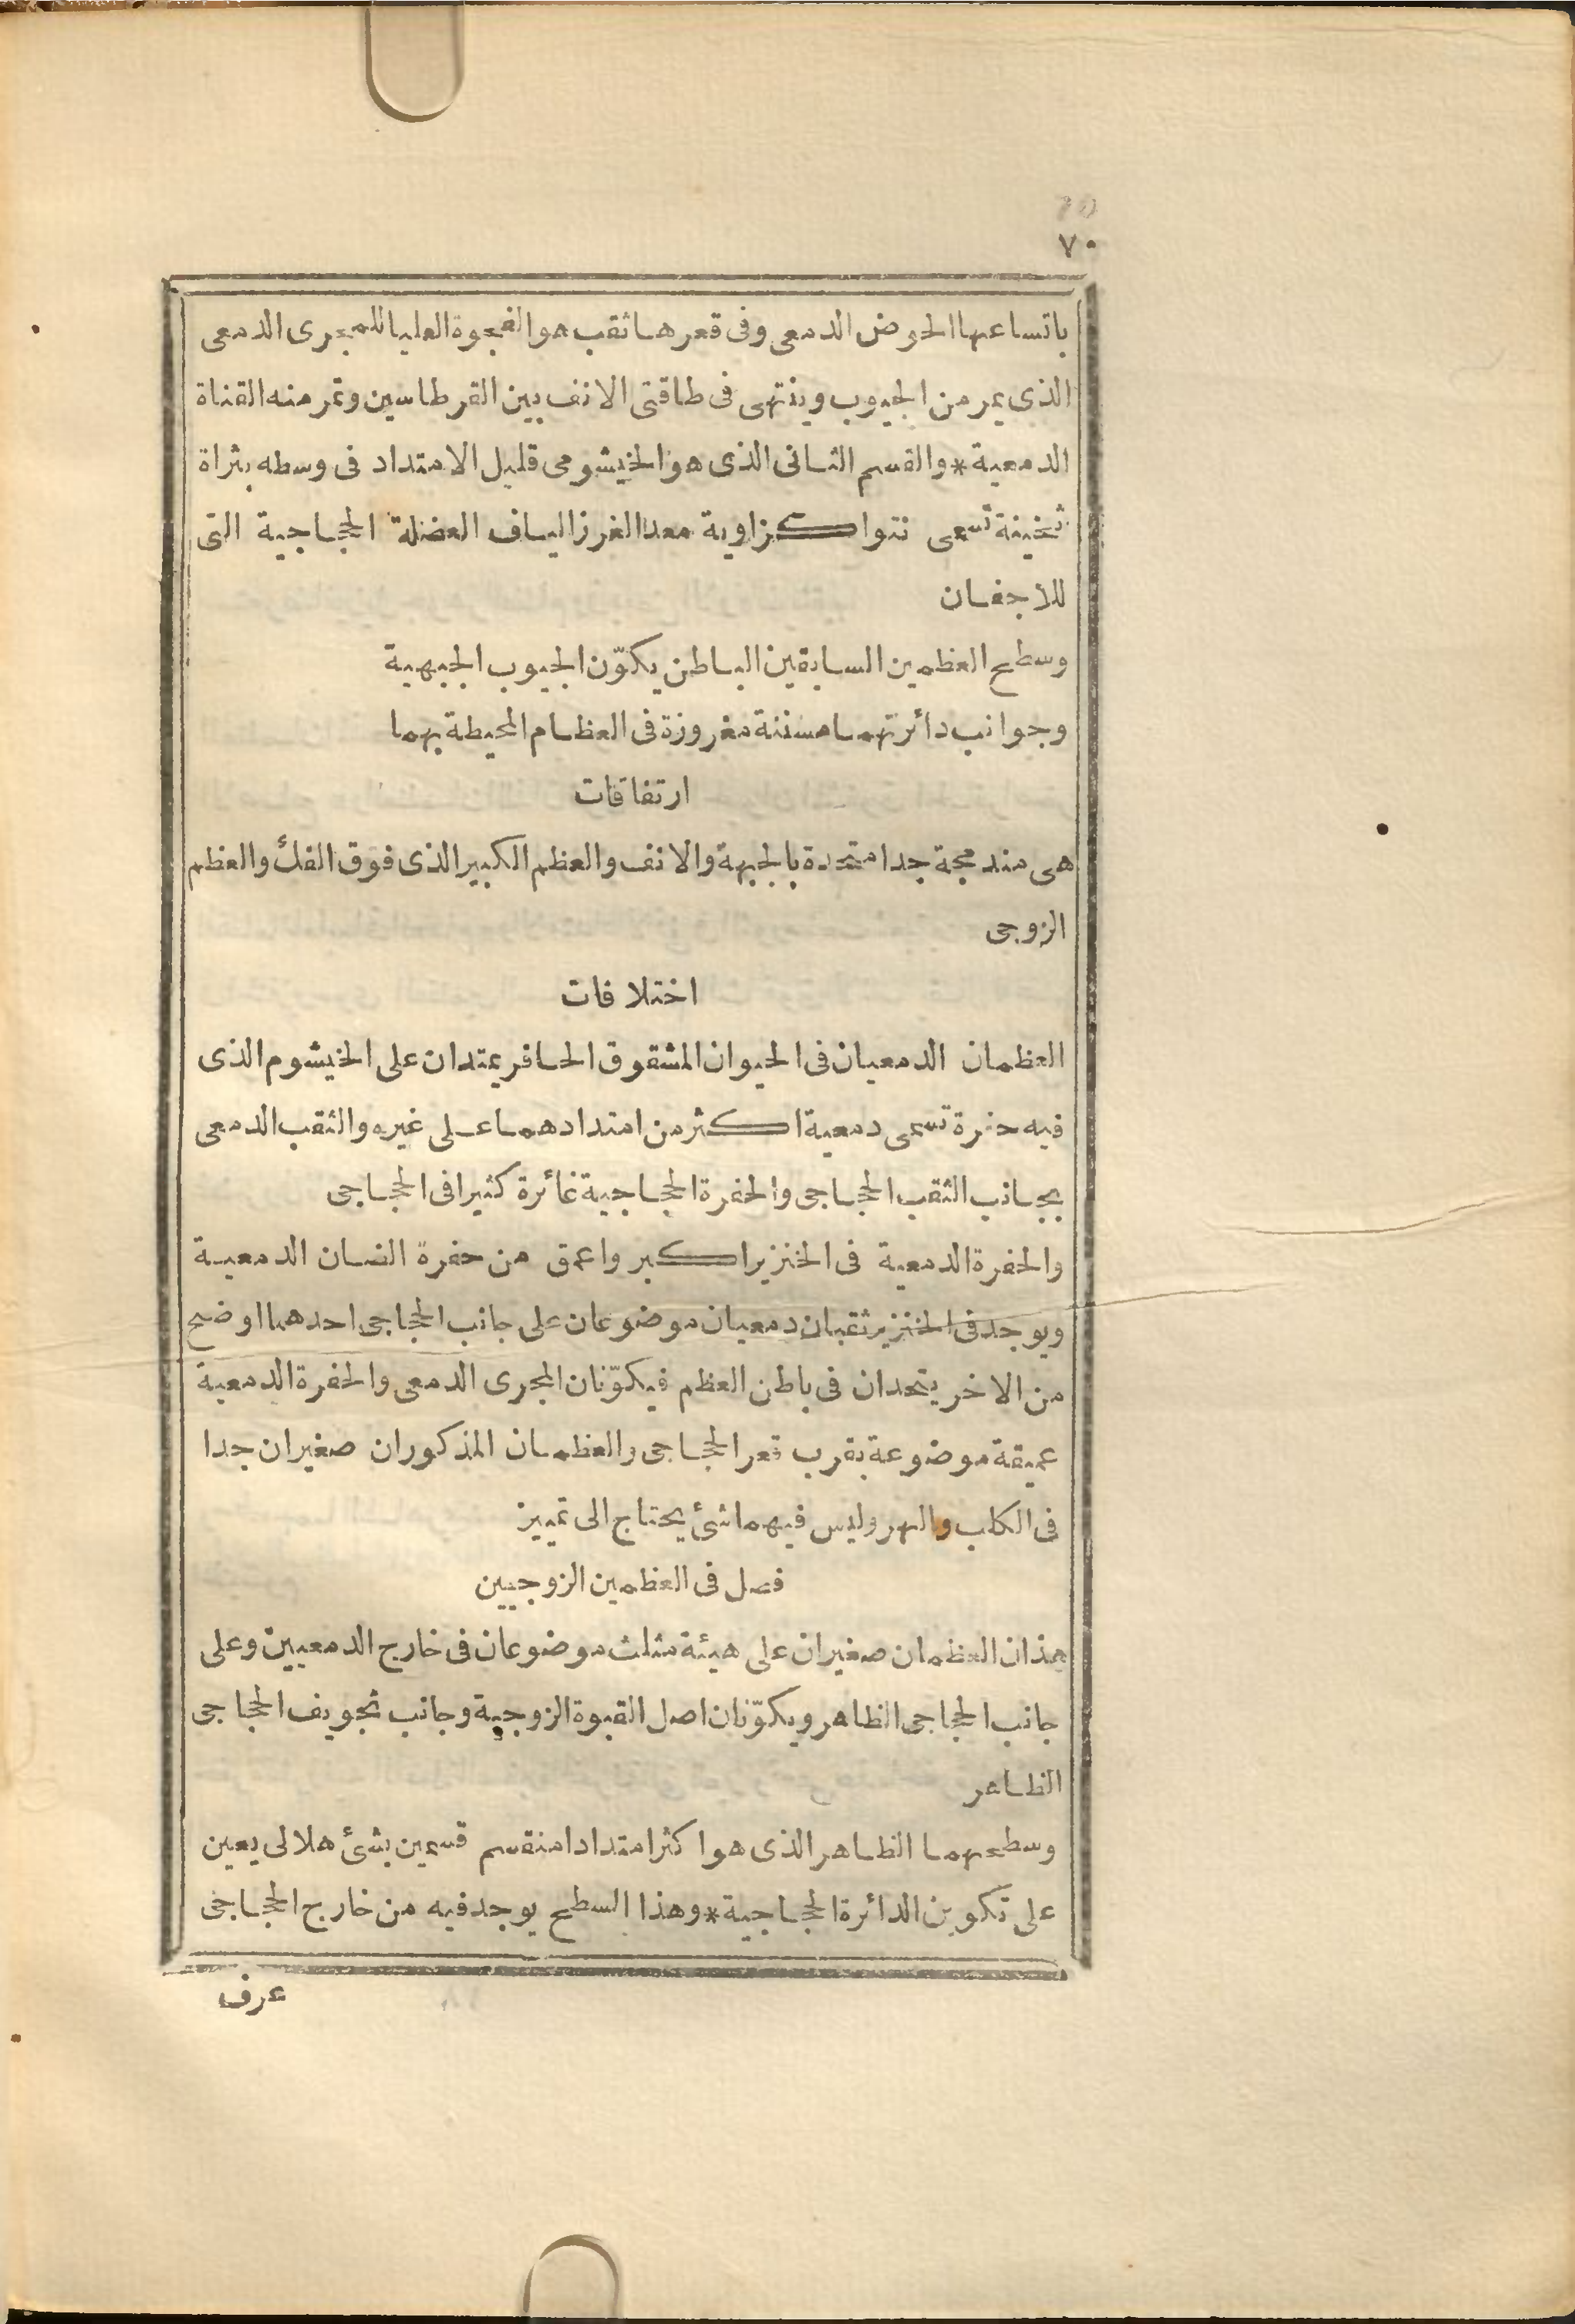 70
٧٠
باتساعها الحوض الدمعى وفى قعرها ثقب هو الفجوة العليا للمجرى الدمعى
الذى يمر من الجيوب وينتهى فى طاقتى الانف بين القرطاسين وتمر منه القناة
الدمعية * والقسم الثانى الذى هو الخيشومى قليل الامتداد فى وسطه بثراة
ثخينة تسمى نتوا كزاوية معدا لغرز الياف العضلة الحجاجية التى
للاجفان
وسطح العظمين السابقين الباطن يكوّن الجيوب الجبهية
وجوانب دائرتهما مسننة مغروزة فى العظام المحيطة بهما
ارتفاقات
هى مندمجة جدا متحدة بالجبهة والانف والعظم الكبير الذى فوق الفك والعظم
الزوجى
اختلافات
العظمان الدمعيان فى الحيوان المشقوق الحافر يمتدان على الخيشوم الذى
فيه حفرة تسمى دمعية اكثر من امتدادهما على غيره والثقب الدمعى
بجانب الثقب الحجاجى والحفرة الحجاجية غائرة كثيرا فى الحجاجى
والحفرة الدمعية فى الخنزير اكبر واعمق من حفرة الضان الدمعية
ويوجد فى الخنزير ثقبان دمعيان موضوعان على جانب الحجاجى احدهما اوضح
من الاخر يتحدان فى باطن العظم فيكوّنان المجرى الدمعى والحفرة الدمعية
عميقة موضوعة بقرب قعر الحجاجى والعظمان المذكوران صغيران جدا
فى الكلب والهر وليس فيهما شئ يحتاج الى تمييز
فصل فى العظمين الزوجيين
هذان العظمان صغيران على هيئة مثلث موضوعان فى خارج الدمعيين وعلى
جانب الحجاجى الظاهر ويكوّنان اصل القبوة الزوجية وجانب تجويف الحجاجى
الظاهر
وسطحهما الظاهر الذى هو اكثر امتدادا منقسم قسمين بشئ هلالى يعين
على تكوين الدائرة الحجاجية * وهذا السطح يوجد فيه من خارج الحجاجى
عرف